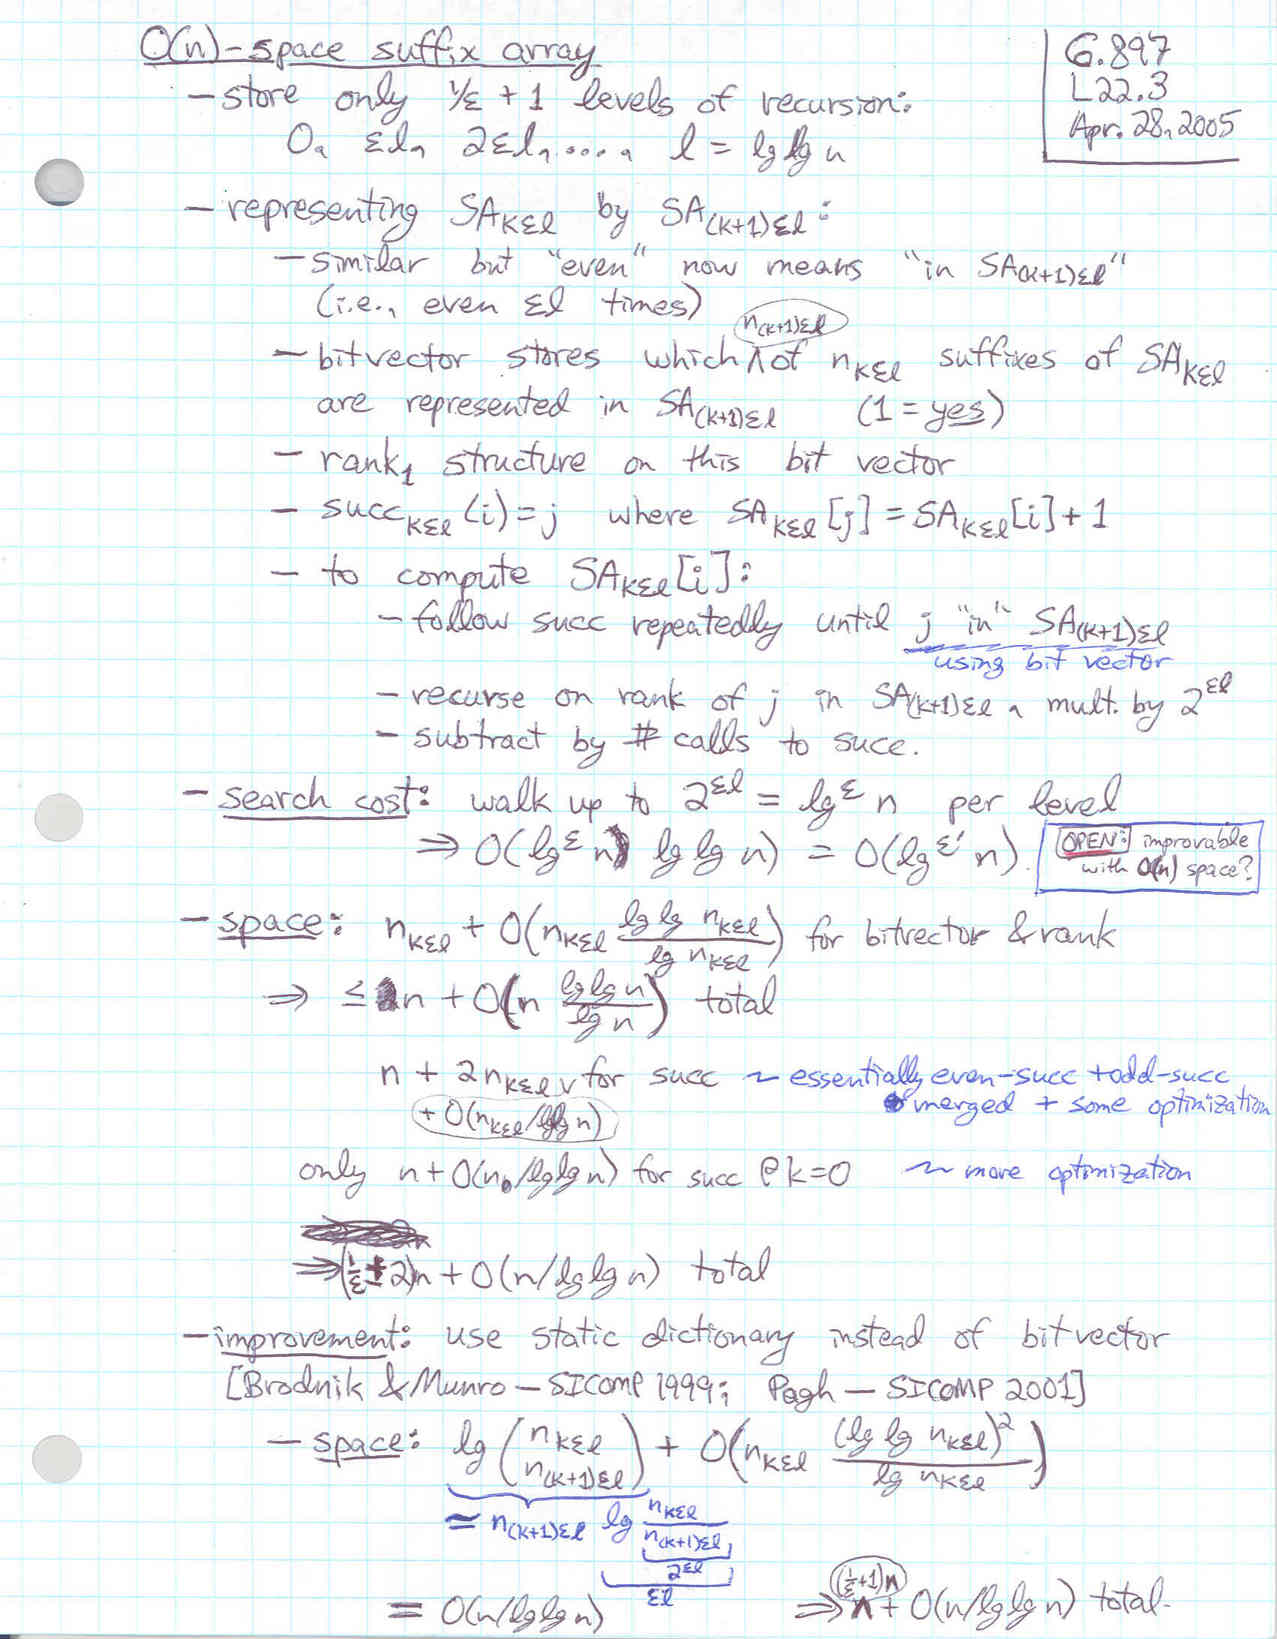 O(n)-space suffix array
6.897
L22.3
Apr. 28, 2005
- store only 1/ε + 1 levels of recursion:
0, εl, 2εl, ...., l = lg lg n
- representing SA_kεl by SA_(k+1)εl:
- similar but "even" now means "in SA_(k+1)εl"
(i.e., even εl times)
n_(k+1)εl
- bitvector stores which ∧ of n_kεl suffixes of SA_kεl
are represented in SA_(k+1)εl (1 = yes)
- rank₁ structure on this bit vector
- succ_kεl (i) = j where SA_kεl [j] = SA_kεl [i] + 1
- to compute SA_kεl [i]:
- follow succ repeatedly until j "in" SA_(k+1)εl
using bit vector
- recurse on rank of j in SA_(k+1)εl, mult. by 2^εl
- subtract by # calls to succ.
- search cost: walk up to 2^εl = lg^ε n per level
⇒ O(lg^ε n lg lg n) = O(lg^ε' n).
OPEN: improvable
with O(n) space?
- space: n_kεl + O(n_kεl lg lg n_kεl / lg n_kεl) for bitvector & rank
⇒ ≤ n + O(n lg lg n / lg n) total
n + 2n_kεl ∨ for succ ~ essentially even-succ + odd-succ
+ O(n_kεl/lg lg n)
merged + some optimization
only n + O(n₀/lg lg n) for succ @ k=0 ~ more optimization
⇒ (1/ε + 2)n + O(n/lg lg n) total
- improvement: use static dictionary instead of bitvector
[Brodnik & Munro - SICOMP 1999; Pagh - SICOMP 2001]
- space: lg (n_kεl n_(k+1)εl) + O(n_kεl (lg lg n_kεl)² / lg n_kεl)
≈ n_(k+1)εl lg n_kεl / n_(k+1)εl
2^εl
εl
(1/ε+1)n
= O(n/lg lg n) ⇒ ∧ + O(n/lg lg n) total.